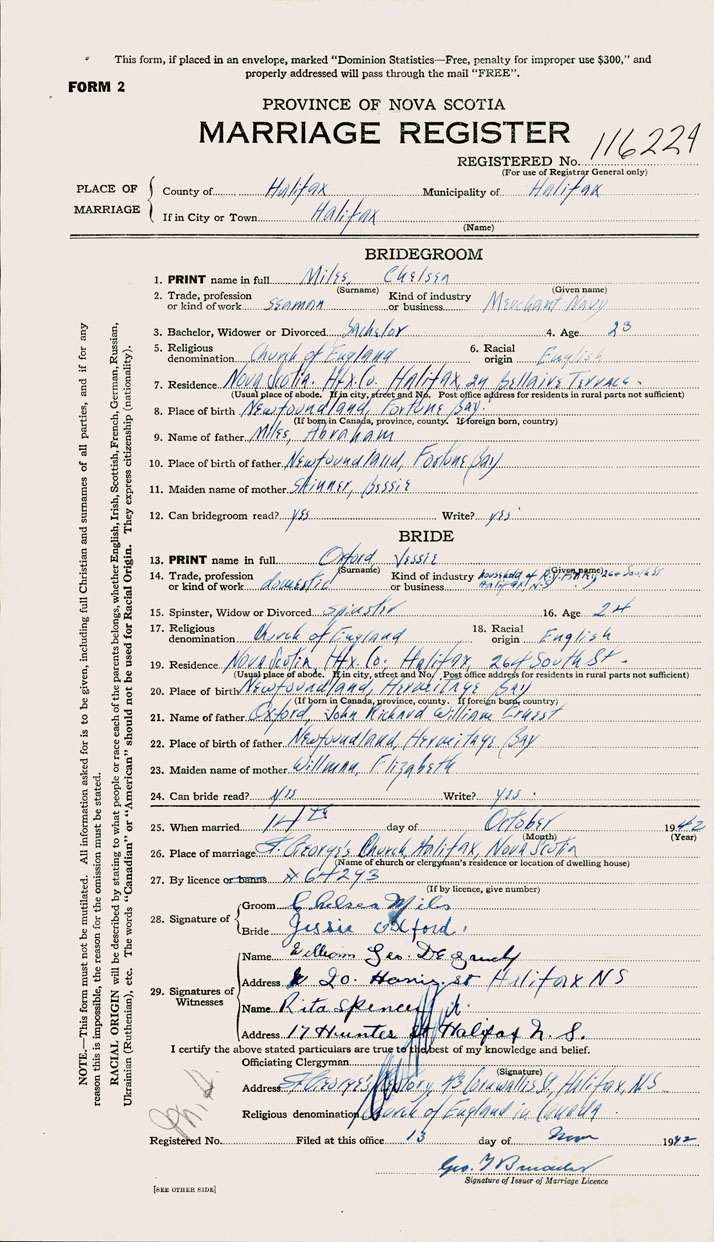 This form, if placed in an envelope, marked "Dominion Statistics—Free, penalty for improper use $300," and
properly addressed will pass through the mail "FREE".
FORM 2
PROVINCE OF NOVA SCOTIA
MARRIAGE REGISTER
REGISTERED No. 116224
(For use of Registrar General only)
PLACE OF MARRIAGE
County of Halifax Municipality of Halifax
If in City or Town Halifax
(Name)
BRIDEGROOM
1. PRINT name in full Miles, Chelsea
(Surname) (Given name)
2. Trade, profession or kind of work seaman Kind of industry or business Merchant Navy
3. Bachelor, Widower or Divorced Bachelor 4. Age 23
5. Religious denomination Church of England 6. Racial origin English
7. Residence Nova Scotia. Hfx. Co. Halifax, 24 Bellaire Terrace.
(Usual place of abode. If in city, street and No. Post office address for residents in rural parts not sufficient)
8. Place of birth Newfoundland, Fortune Bay.
(If born in Canada, province, county. If foreign born, country)
9. Name of father Miles, Abraham
10. Place of birth of father Newfoundland, Fortune Bay
11. Maiden name of mother Skinner, Bessie
12. Can bridegroom read? yes Write? yes
BRIDE
13. PRINT name in full Oxford, Jessie
(Surname) (Given name)
14. Trade, profession or kind of work domestic Kind of industry or business household of 264 South St Halifax N.S.
15. Spinster, Widow or Divorced spinster 16. Age 24
17. Religious denomination Church of England 18. Racial origin English
19. Residence Nova Scotia, Hfx. Co. Halifax, 264 South St.
(Usual place of abode. If in city, street and No. Post office address for residents in rural parts not sufficient)
20. Place of birth Newfoundland, Hermitage Bay
(If born in Canada, province, county. If foreign born, country)
21. Name of father Oxford, John Richard William Ernest
22. Place of birth of father Newfoundland, Hermitage Bay
23. Maiden name of mother Willman, Elizabeth
24. Can bride read? yes Write? yes.
25. When married 14th day of October 1942
(Month) (Year)
26. Place of marriage St. George's Church, Halifax, Nova Scotia
(Name of church or clergyman's residence or location of dwelling house)
27. By licence or banns # 64293
(If by licence, give number)
28. Signature of
Groom Chelsea Miles
Bride Jessie Oxford.
29. Signatures of Witnesses
Name William Geo. DeGruchy
Address St Halifax NS
Name Rita Spencer
Address 17 Hunter St Halifax N.S.
I certify the above stated particulars are true to the best of my knowledge and belief.
Officiating Clergyman
(Signature)
Address St. George's Rectory, Cornwallis St, Halifax, NS
Religious denomination Church of England in Canada.
Registered No. Filed at this office 13 day of Nov 1942
Geo.
Signature of Issuer of Marriage Licence
[SEE OTHER SIDE]
NOTE.—This form must not be mutilated. All information asked for is to be given, including full Christian and surnames of all parties, and if for any
reason this is impossible, the reason for the omission must be stated.
RACIAL ORIGIN will be described by stating to what people or race each of the parents belongs, whether English, Irish, Scottish, French, German, Russian,
Ukrainian (Ruthenian), etc. The words "Canadian" or "American" should not be used for Racial Origin. They express citizenship (nationality).